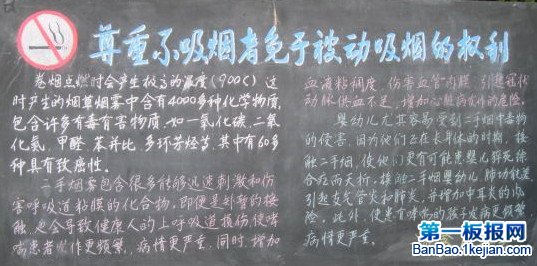 尊重不吸烟者免于被动吸烟的权利
卷烟点燃时会产生极高的温度(900C)这
时产生的烟草烟雾中含有4000多种化学物质,
包含许多有毒有害物质.如一氧化碳.二氧
化氮.甲醛.苯并比.多环芳烃等,其中有60多
种具有致癌性。
二手烟雾包含很多能够迅速刺激和伤
害呼吸道粘膜的化合物,即便是短暂的接
触,也会导致健康人的上呼吸道损伤,使哮
喘患者发作更频繁,病情更严重.同时.增加
血液粘稠度,伤害血管内膜,引起冠状
动脉供血不足,增加心脏病发作的危险。
婴幼儿尤其容易受到二手烟中毒物
的侵害,因为他们正在长身体的时期,接
触二手烟,使他们更有可能患婴儿猝死综
合症而夭折.接触二手烟婴幼儿肺功能差
引起支气管炎和肺炎,并增加中耳炎的危
险。此外,使患有哮喘的孩子发病更频繁,
病情更严重。
第一板报网
BanBao.1kejian.com